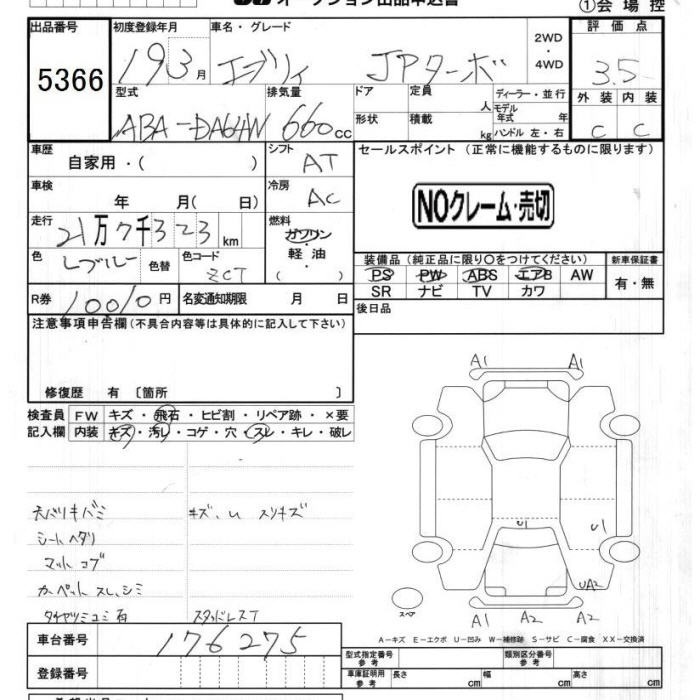 オークション出品申込書
①会場控
出品番号 5366
初度登録年月 19 3月
車名・グレード エブリイ JPターボ
2WD・4WD
評価点 3.5
外装 C 内装 C
型式 ABA-DA64W
排気量 660cc
ドア 形状
定員 人 積載 kg
ディーラー・並行
モデル年式 年
ハンドル 左・右
車歴 自家用・( )
シフト AT
セールスポイント (正常に機能するものに限ります)
NOクレーム・売切
車検 年 月( 日)
冷房 AC
走行 21万7千323km
燃料 ガソリン・軽油・( )
色 Lブルー 色替
色コード ZCT
装備品 (純正品に限り○をつけてください)
PS PW ABS エアB AW
SR ナビ TV カワ
新車保証書 有・無
R券 10010円
名変通知期限 月 日
後日品
注意事項申告欄 (不具合内容等は具体的に記入して下さい)
修復歴 有 〔箇所 〕
検査員記入欄
FW キズ・飛石・ヒビ割・リペア跡・×要
内装 キズ・汚レ・コゲ・穴・スレ・キレ・破レ
キズ、U スリキズ
シートヘタリ
マットコゲ
カーペットスレ、シミ
スタッドレスT
A1 A1
U1 U1
UA2
A1 A2 A2
スペア
A-キズ E-エクボ U-凹み W-補修跡 S-サビ C-腐食 XX-交換済
車台番号 176275
登録番号
型式指定番号 参考
類別区分番号 参考
車庫証明用 参考 長さ cm 幅 cm 高さ cm